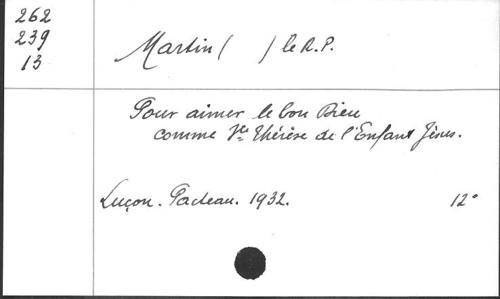 262
239
13
Martin (      ) le R.P.
Pour aimer le bon Dieu
comme Ste Thérèse de l'Enfant Jésus.
Luçon. Pacteau. 1932. 12°